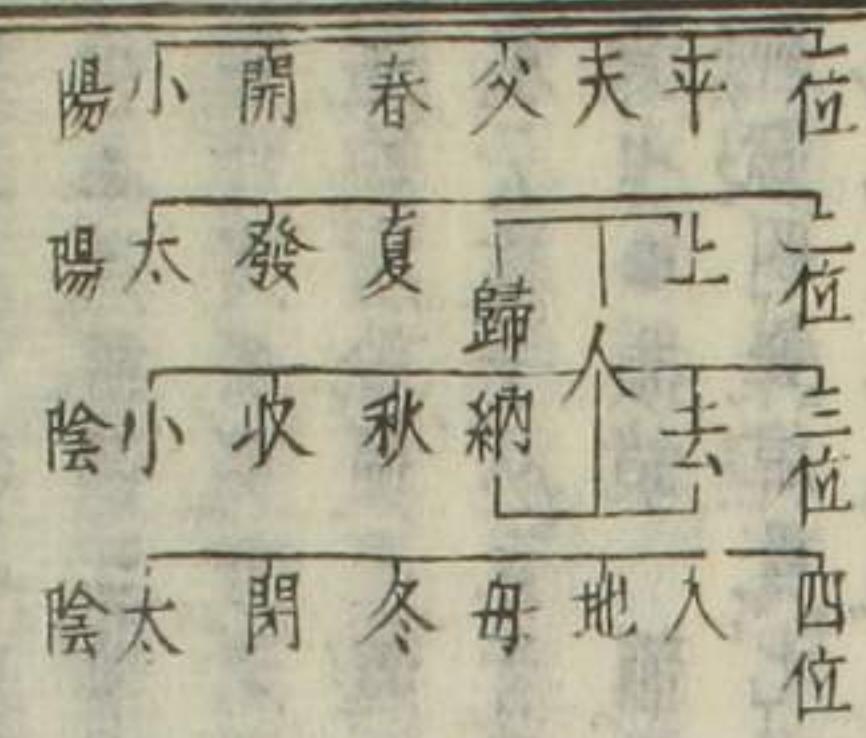 一位 平 天 父 春 開 小陽
二位 上 人 歸納 夏 發 太陽
三位 去 秋 收 小陰
四位 入 地 母 冬 閉 太陰